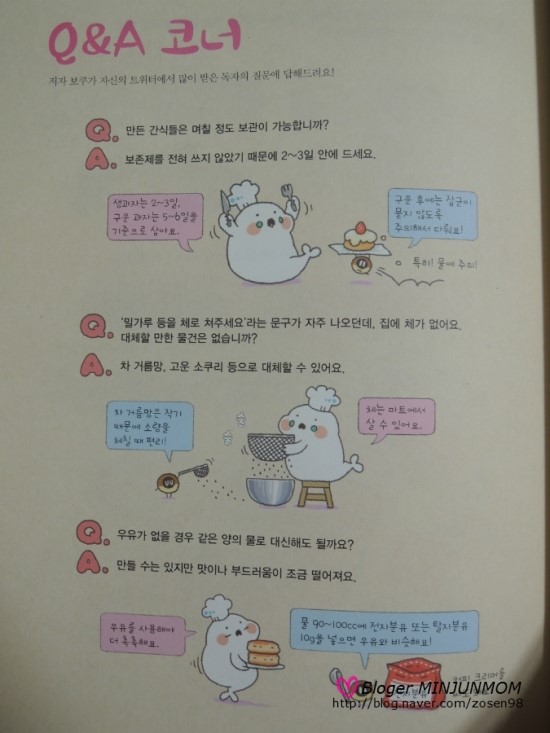 Q&A 코너
저자 보루가 자신의 트위터에서 많이 받은 독자의 질문에 답해드려요!
Q. 만든 간식들은 며칠 정도 보관이 가능합니까?
A. 보존제를 전혀 쓰지 않았기 때문에 2~3일 안에 드세요.
생과자는 2~3일,
구운 과자는 5~6일을
기준으로 삼아요.
구운 후에는 잡균이
묻지 않도록
주의해서 다뤄요!
특히! 물에 주의!
Q. '밀가루 등을 체로 쳐주세요'라는 문구가 자주 나오던데, 집에 체가 없어요.
대체할 만한 물건은 없습니까?
A. 차 거름망, 고운 소쿠리 등으로 대체할 수 있어요.
차 거름망은 작기
때문에 소량을
체칠 때 편리!
솔
솔
체는 마트에서
살 수 있어요.
Q. 우유가 없을 경우 같은 양의 물로 대신해도 될까요?
A. 만들 수는 있지만 맛이나 부드러움이 조금 떨어져요.
우유를 사용해야
더 촉촉해요.
물 90~100cc에 전지분유 또는 탈지분유
10g을 넣으면 우유와 비슷해요!
커피 크리머를
Bloger MINJUNMOM
http://blog.naver.com/zosen98